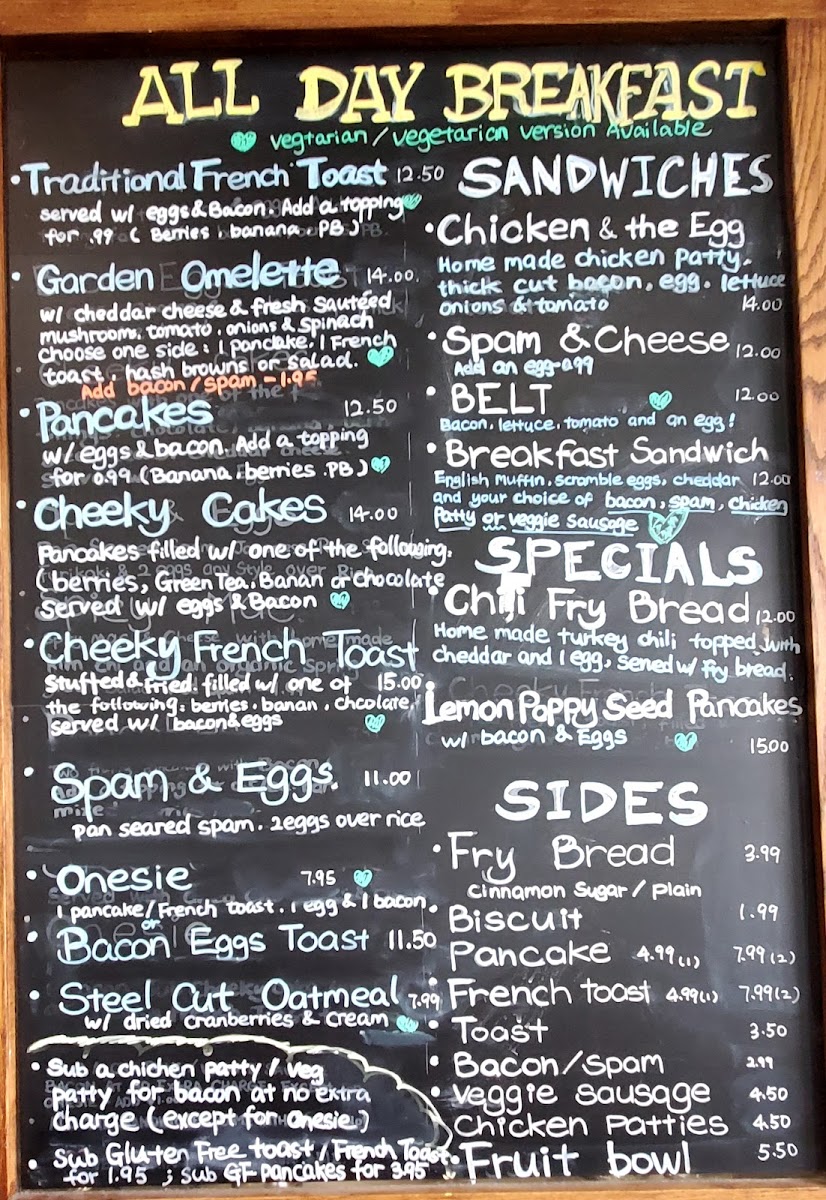 ALL DAY BREAKFAST
vegtarian/vegetarian version Available
• Traditional French Toast 12.50
served w/ eggs & Bacon. Add a topping
for .99 ( Berries . banana . PB )
• Garden Omelette 14.00
w/ cheddar cheese & fresh Sautéed
mushrooms, tomato, onions & spinach
choose one side : 1 pancake, 1 French
toast, hash browns or salad.
Add bacon/spam - 1.95
• Pancakes 12.50
w/ eggs & bacon. Add a topping
for 0.99 (Banana. berries .PB)
• Cheeky Cakes 14.00
Pancakes filled w/ one of the following.
(berries, Green Tea. Banan or chocolate
served w/ eggs & Bacon
• Cheeky French Toast
Stuffed & fried filled w/ one of 15.00
the following: berries. banan, chcolate,
served w/ bacon & eggs
• Spam & Eggs. 11.00
pan seared spam. 2eggs over rice
• Onesie 7.95
1 pancake/French toast. 1 egg & 1 bacon.
or
• Bacon Eggs Toast 11.50
• Steel Cut Oatmeal 7.99
w/ dried cranberries & cream
• Sub a chichen patty / veg
patty for bacon at no extra
charge (except for onesie)
• Sub Gluten Free toast/French Toast
for 1.95 ; Sub GF pancakes for 3.95
SANDWICHES
• Chicken & the Egg
Home made chicken patty.
thick cut bacon, egg. lettuce
onions & tomato 14.00
• Spam & Cheese 12.00
Add an egg-.99
• BELT 12.00
Bacon, lettuce, tomato and an egg!
• Breakfast Sandwich
English Muffin, scramble eggs, cheddar 12.00
and your choice of bacon, spam, chicken
Patty or veggie sausage
SPECIALS
• Chili Fry Bread 12.00
Home made turkey chili topped with
cheddar and 1 egg, served w/ fry bread.
Lemon Poppy Seed Pancakes
w/ bacon & Eggs 15.00
SIDES
• Fry Bread 3.99
Cinnamon Sugar / Plain
• Biscuit 1.99
Pancake 4.99(1) 7.99(2)
• French toast 4.99(1) 7.99(2)
• Toast 3.50
• Bacon/Spam 2.99
• veggie sausage 4.50
Chicken Patties 4.50
• Fruit bowl 5.50